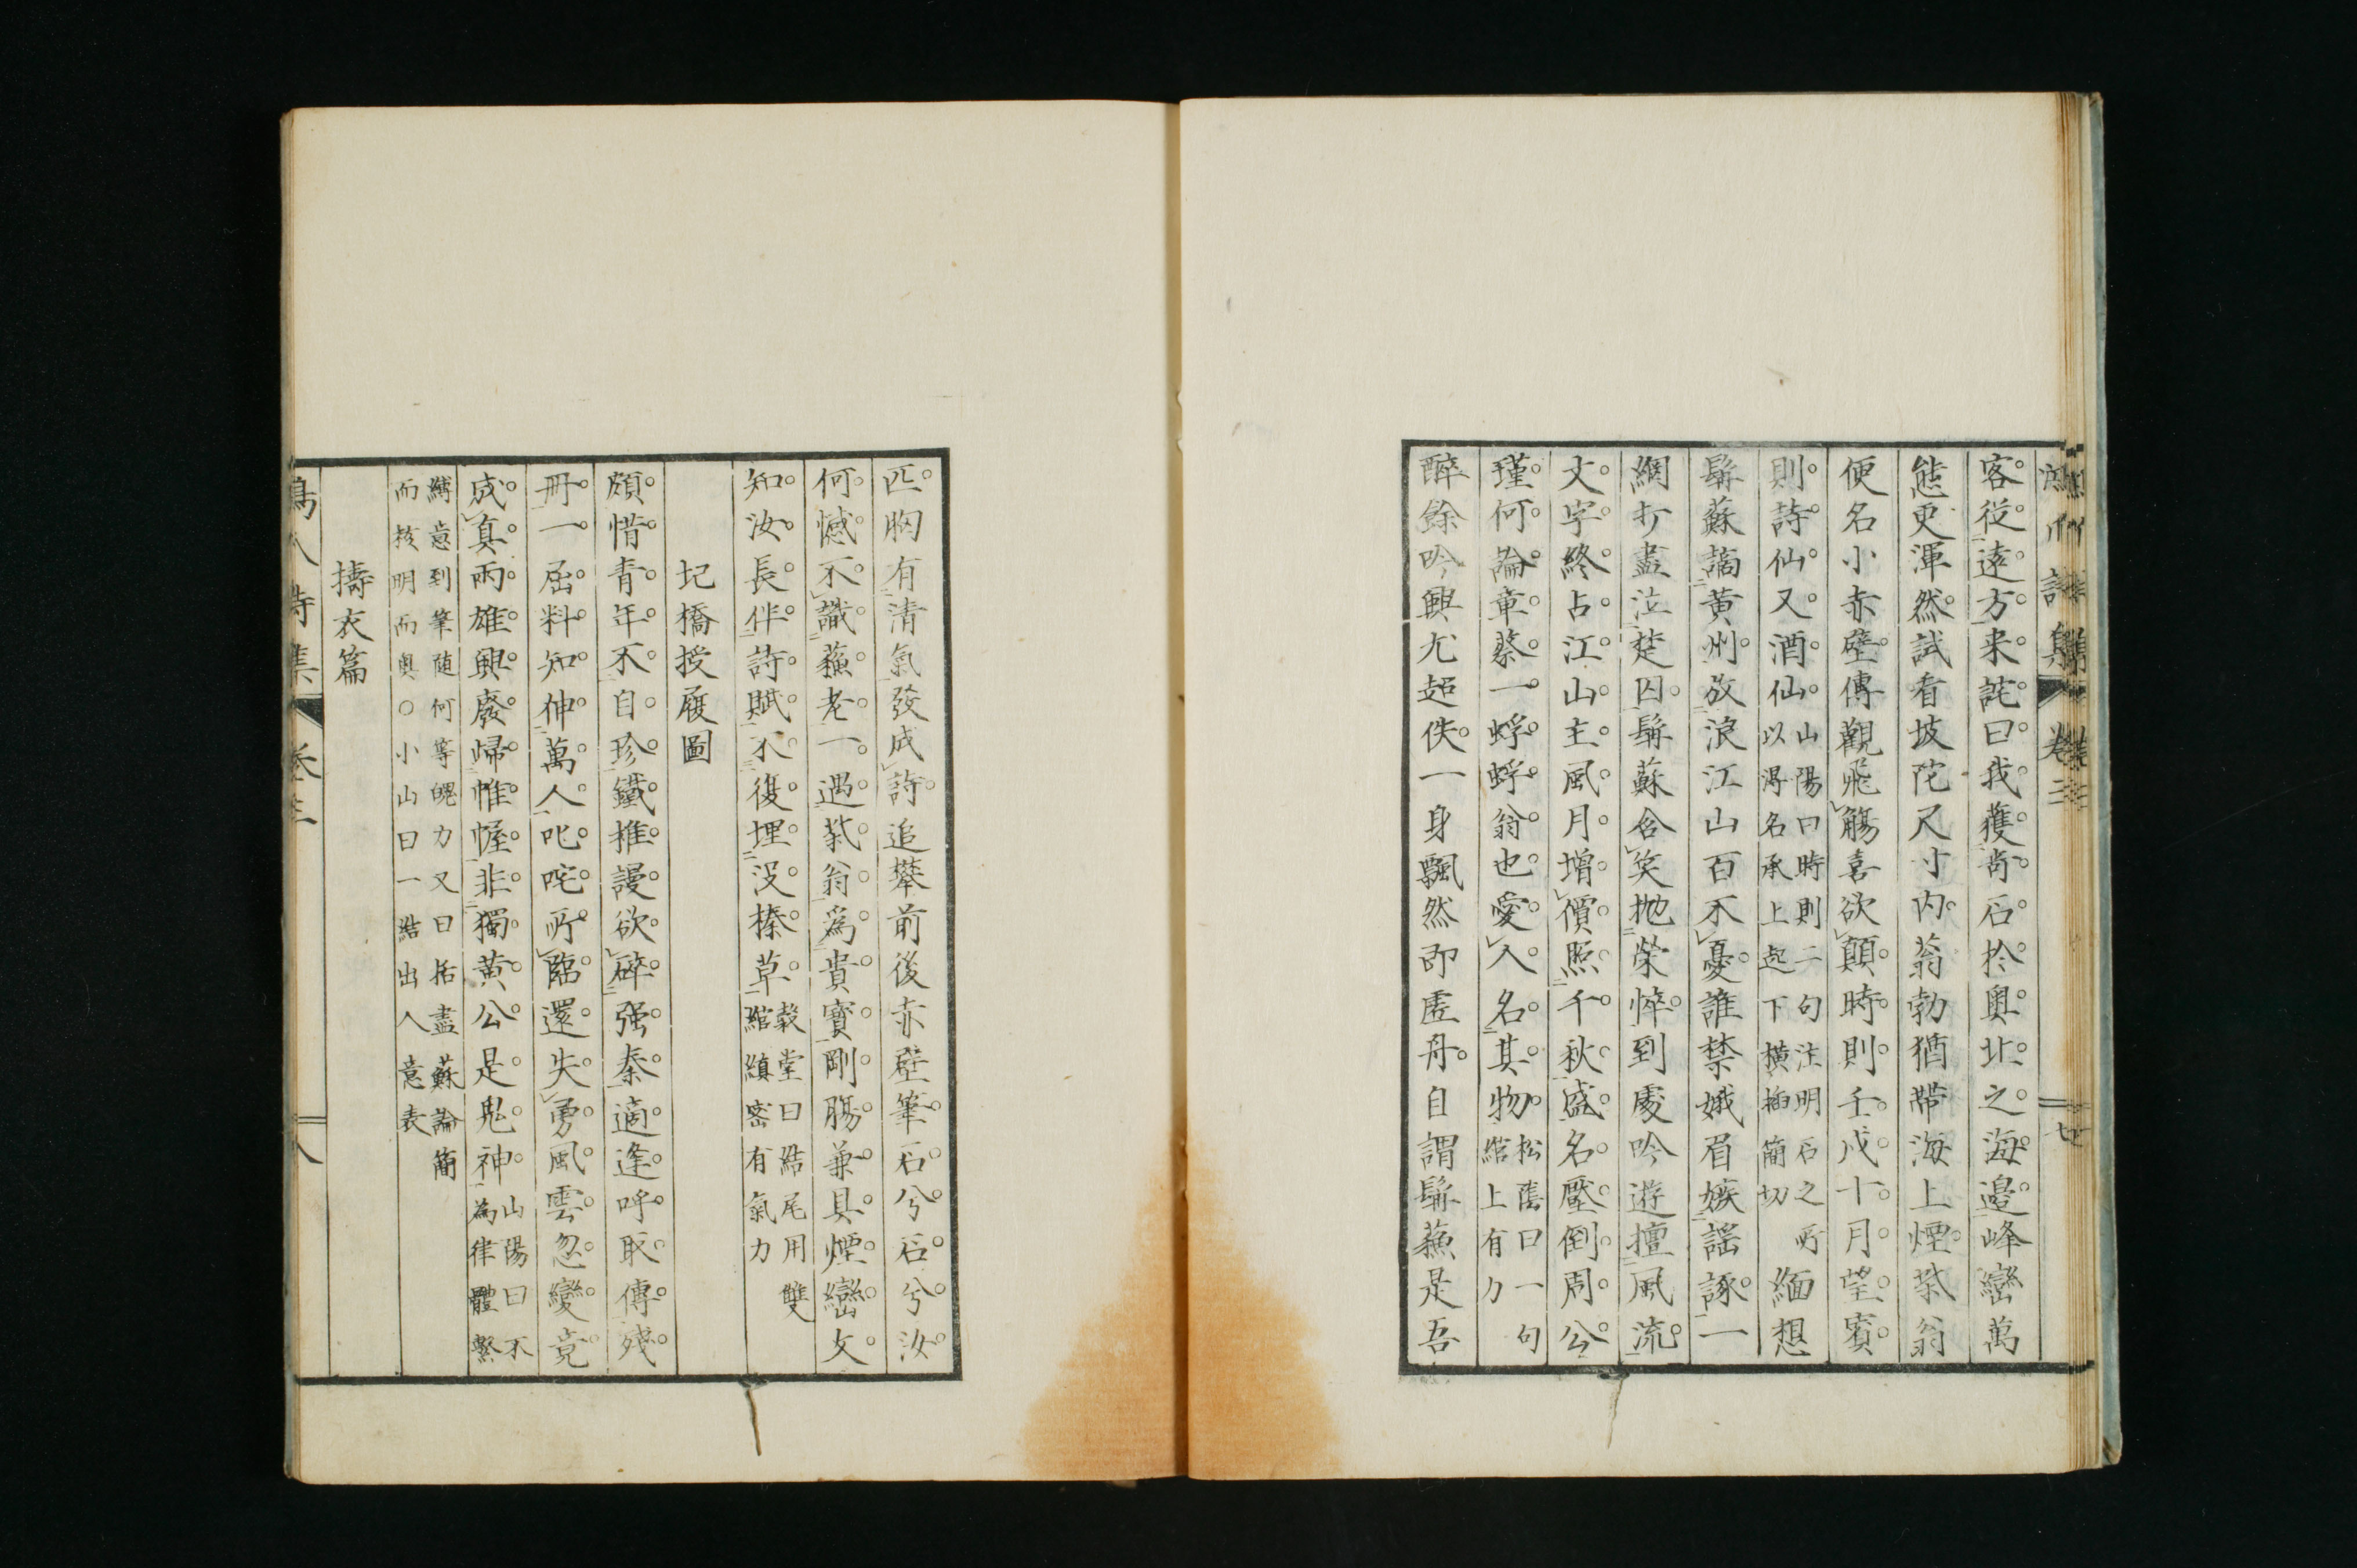 客從遠方来詫曰我獲奇石於奧北之海邊峰巒萬
態更渾然試看坡陀尺寸內蓊勃猶帶海上煙茶翁
便名小赤壁傳觀飛觴喜欲顛時則壬戌十月望賓
則詩仙又酒仙
山陽曰時則二句注明石之所
以得名承上起下橫插簡切
緬想
髯蘇謫黃州放浪江山百不憂誰禁娥眉嫉謡諑一
網打盡泣楚囚髯蘇含笑抛榮悴到處吟遊擅風流
文字終占江山主風月增價照千秋盛名壓倒周公
瑾何論章蔡一蜉蝣翁也愛人名其物
松蔭曰一句
綰上有力
醉餘吟興尤超佚一身飄然即虛舟自謂髯蘓是吾
匹胸有清氣發成詩追攀前後赤壁筆石兮石兮汝
何憾不識蘓老一遇茶翁爲貴寶剛腸兼具煙巒文
知汝長伴詩賦不復埋没榛草
榖堂曰結尾用雙
綰縝密有氣力
圮橋授履圖
頗惜青年不自珍鐵推謾欲碎强秦適逢呼取傳殘
冊一屈料知伸萬人叱咤所臨還失勇風雲忽變竟
成真兩雄興廢帰帷幄非獨黄公是鬼神
山陽曰不
為律體繫
縛意到筆随何等魄力又曰括盡蘇論簡
而核明而奧○小山曰一結出人意表
擣衣篇
詩集
卷三